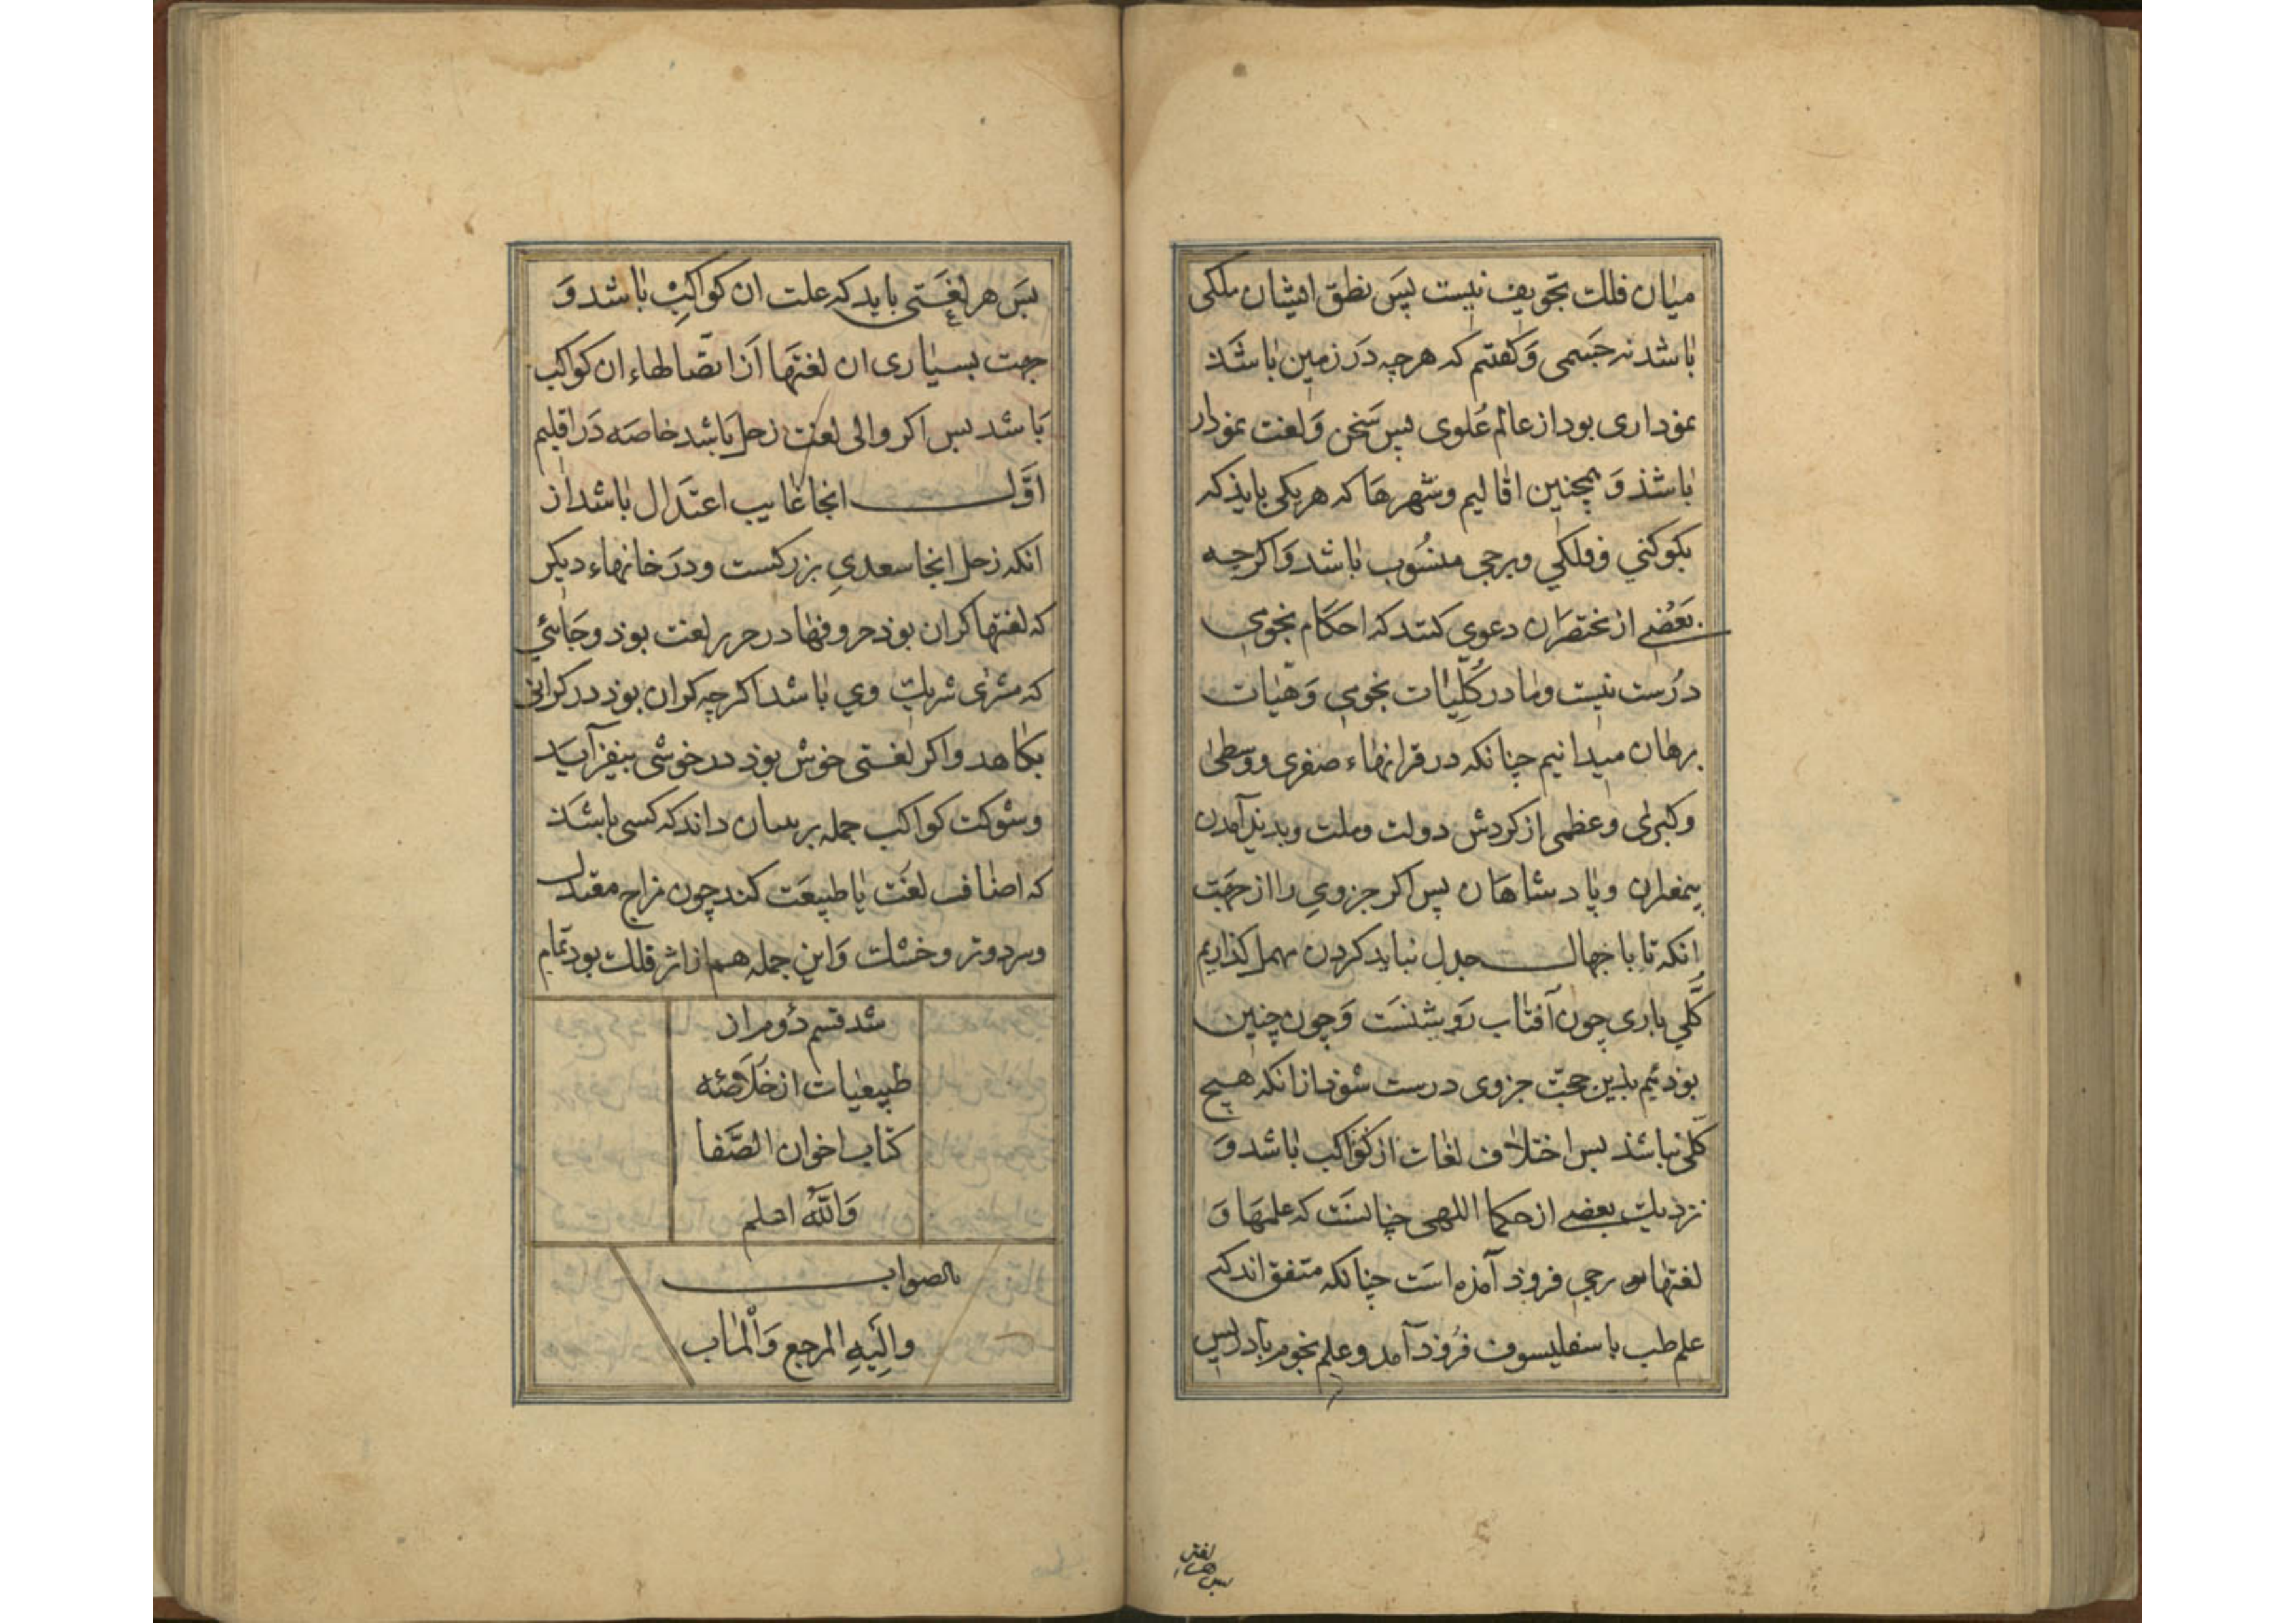 میان فلک تجویف نیست پس نطق ایشان ملکی
باشد نه جسمی وَ کفتم که هرچه دَر زمین باشَذ
نموداری بود از عالم عُلوی پس سَخن وَ لغت نمودار
باشذ وَ همچنین اقالیم و شهرهَا که هر یکی بایذ که
بکوکبی و فلکی و برجی منسُوب باشد وَ اکرچه
بَعْضے از مختصَران دعوی کنند که احکام نجومی
درُست نیست و ما در کُلّیات نجومی وَ هیٔات
برهان میدانیم چنانکه در قرانهاء صغری و وسطیٰ
و کبریٰ و عظمی از کردش دولت و ملت و بدید آمدن
پیغمبران و پادشاهَان پس اکر جزوی را از جهَت
انکه تا با جهال جدل نباید کردن مهمل کذاریم
کُلّی باری چون آفتاب رَوشنَست وَ چون چنین
بوذ ٔیم بذین حجّت جزوی درست شوذ از انکه هیچ
کلّی نباشذ پس اختلاف لغات از کواکب باشد وَ
نزدیک بعضے از حکما اللهی چنانسَت که علمهَا وَ
لغتها بوحی فروذ آمذه است چنانکه متفق اند که
علم طب با سقلیسوف فرُوذ آمد و علم نجوم بادریس
پس هر لغتی
پسَ هر لغَتی باید که علت ان کواکبْ باشد وَ
جهت بسیاری ان لغتهَا اَز اتّصالهاء ان کواکب
باشد بس اکر والی لغت زحل باشد خاصَه دَر اقلیم
اوّل انجا غایب اعتدال باشد از
انکه زحل انجا سعدیِ بزرکست و دَر خانهاء دیکر
که لغتها کران بوذ حروفها در حرر لغت بوذ و جَائی
که مشتری شریک وی باشد اکرچه کران بوذ در کرانی
بکاهد و اکر لغتی خوش بوذ در خوشی بیفزآید
و شوکت کواکب جمله بر بسان داند که کسی باشَذ
که اضافت لغَت با طبیعَت کند چون مزاج معتدل
و سرد و تر و خشک وَ این جمله هم از اثر فلک بود تمام
شد قسم دُوم از
طبیعیات از خلاصَه
کتاب اخوان الصَّفا
وَاللّٰهُ اعلم
بالصواب
والَِیهِ المرجع وَالْمَاب